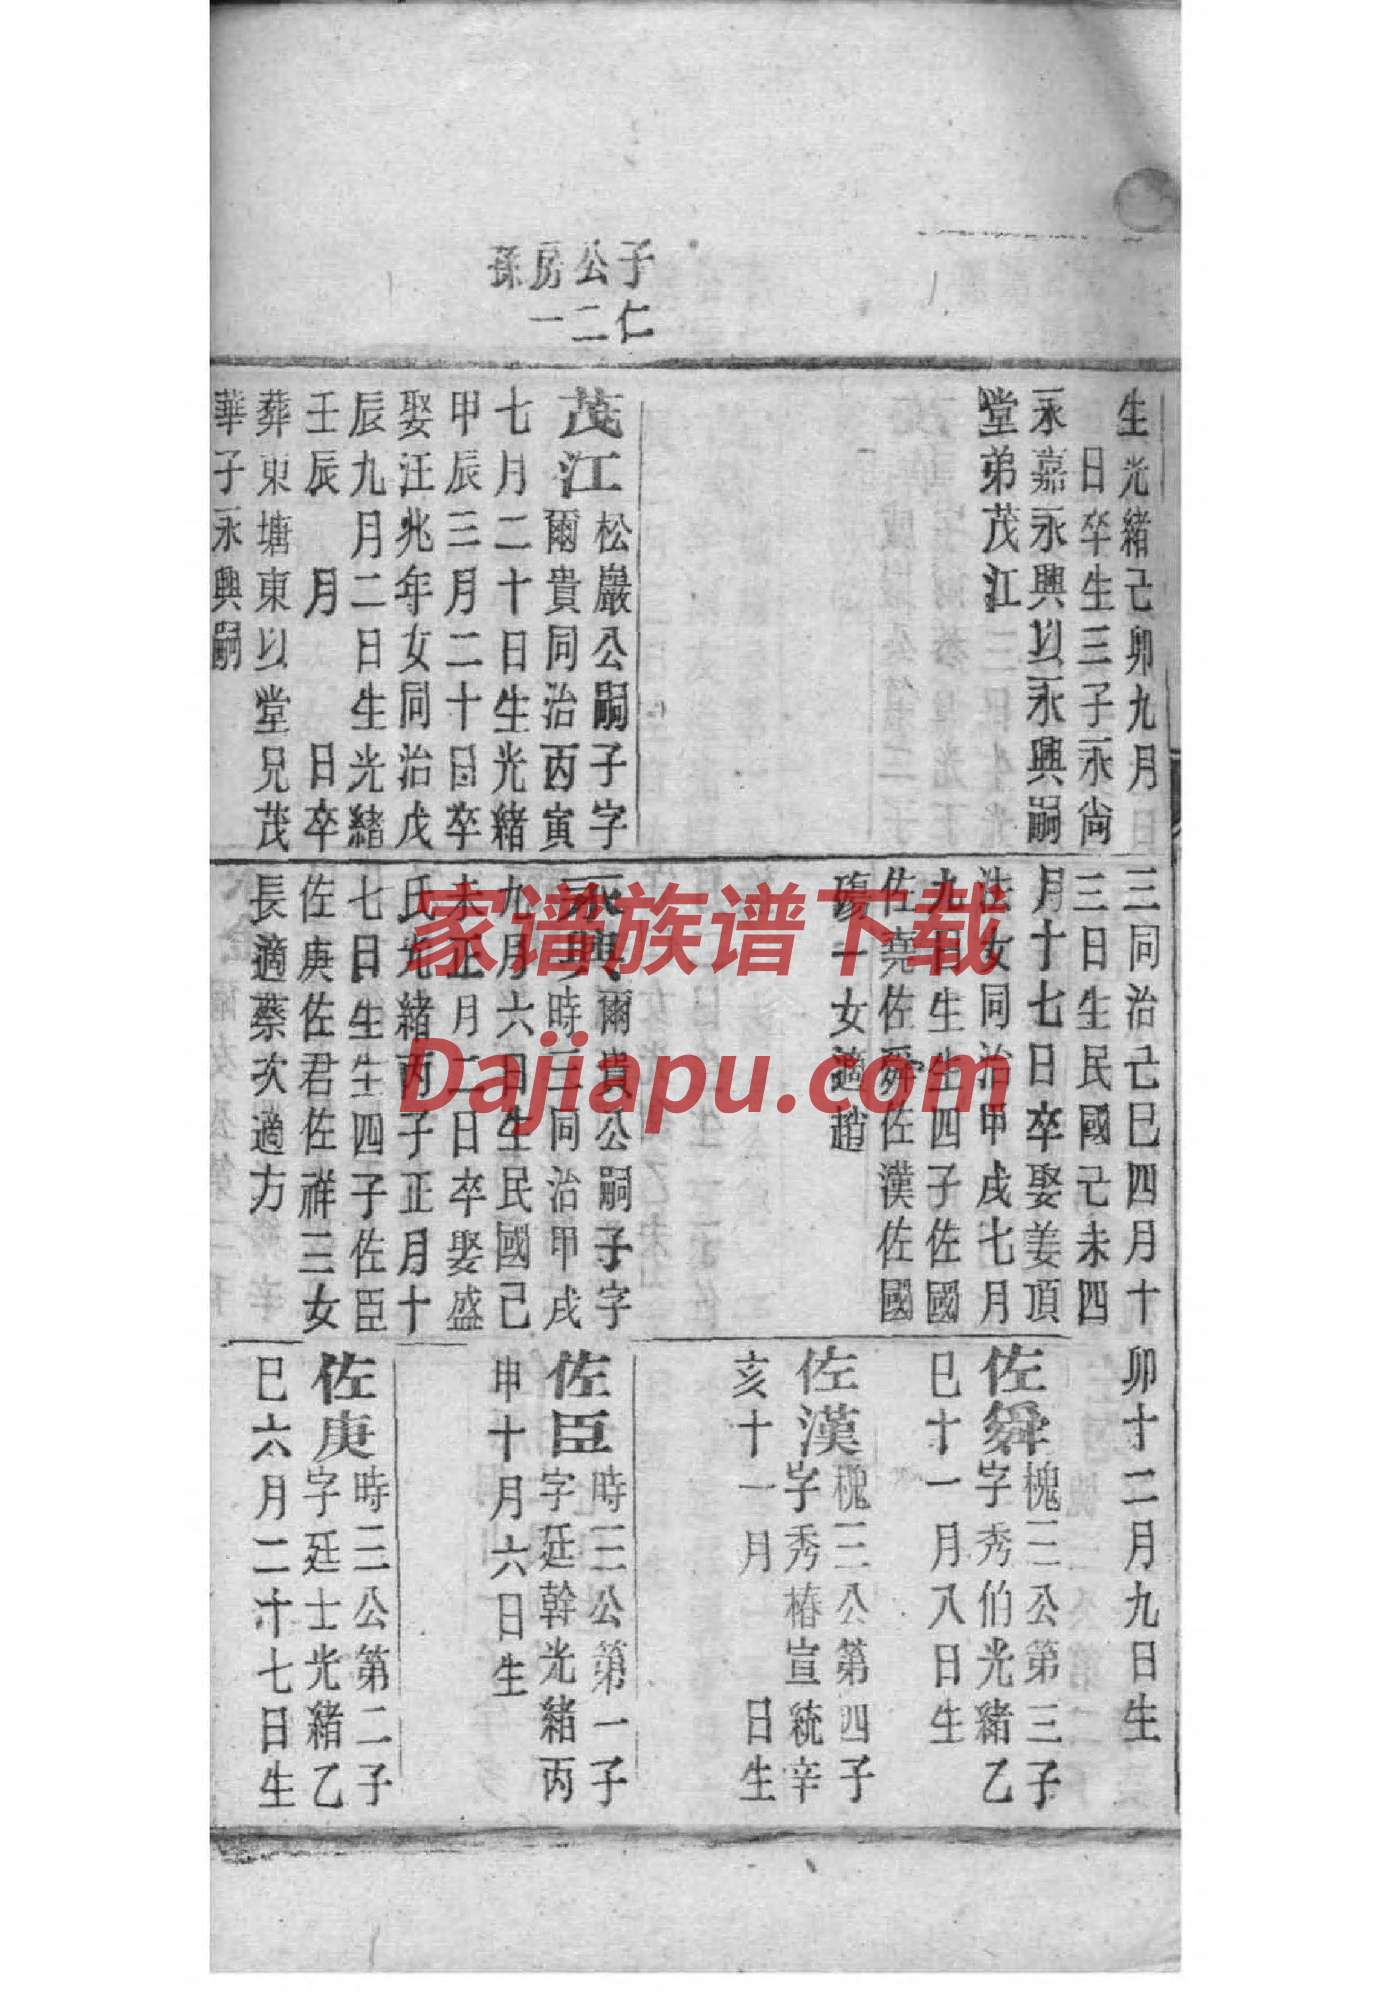 子仁
公二
房一
孫
生光緒己卯九月
日卒生三子永尙
永嘉永興以永興嗣
堂弟茂江
茂江
松巖公嗣子字
爾貴同治丙寅
七月二十日生光緒
甲辰三月二十日卒
娶汪兆年女同治戊
辰九月二日生光緒
壬辰 月 日卒
葬東塘東以堂兄茂
華子永興嗣
三同治己巳四月十
三日生民國己未四
月十七日卒娶姜頂
法女同治甲戌七月
九日生生四子佐國
佐堯佐舜佐漢佐國
殤一女適趙
永興
爾貴公嗣子字
時三同治甲戌
九月六日生民國己
未正月二日卒娶盛
氏光緒丙子正月十
七日生生四子佐臣
佐庚佐君佐祥三女
長適蔡次適方
卯十二月九日生
佐舜
槐三公第三子
字秀伯光緒乙
巳十一月八日生
佐漢
槐三公第四子
字秀椿宣統辛
亥十一月 日生
佐臣
時三公第一子
字廷幹光緒丙
申十月六日生
佐庚
時三公第二子
字廷士光緒乙
巳六月二十七日生
家谱族谱下载
Dajiapu.com